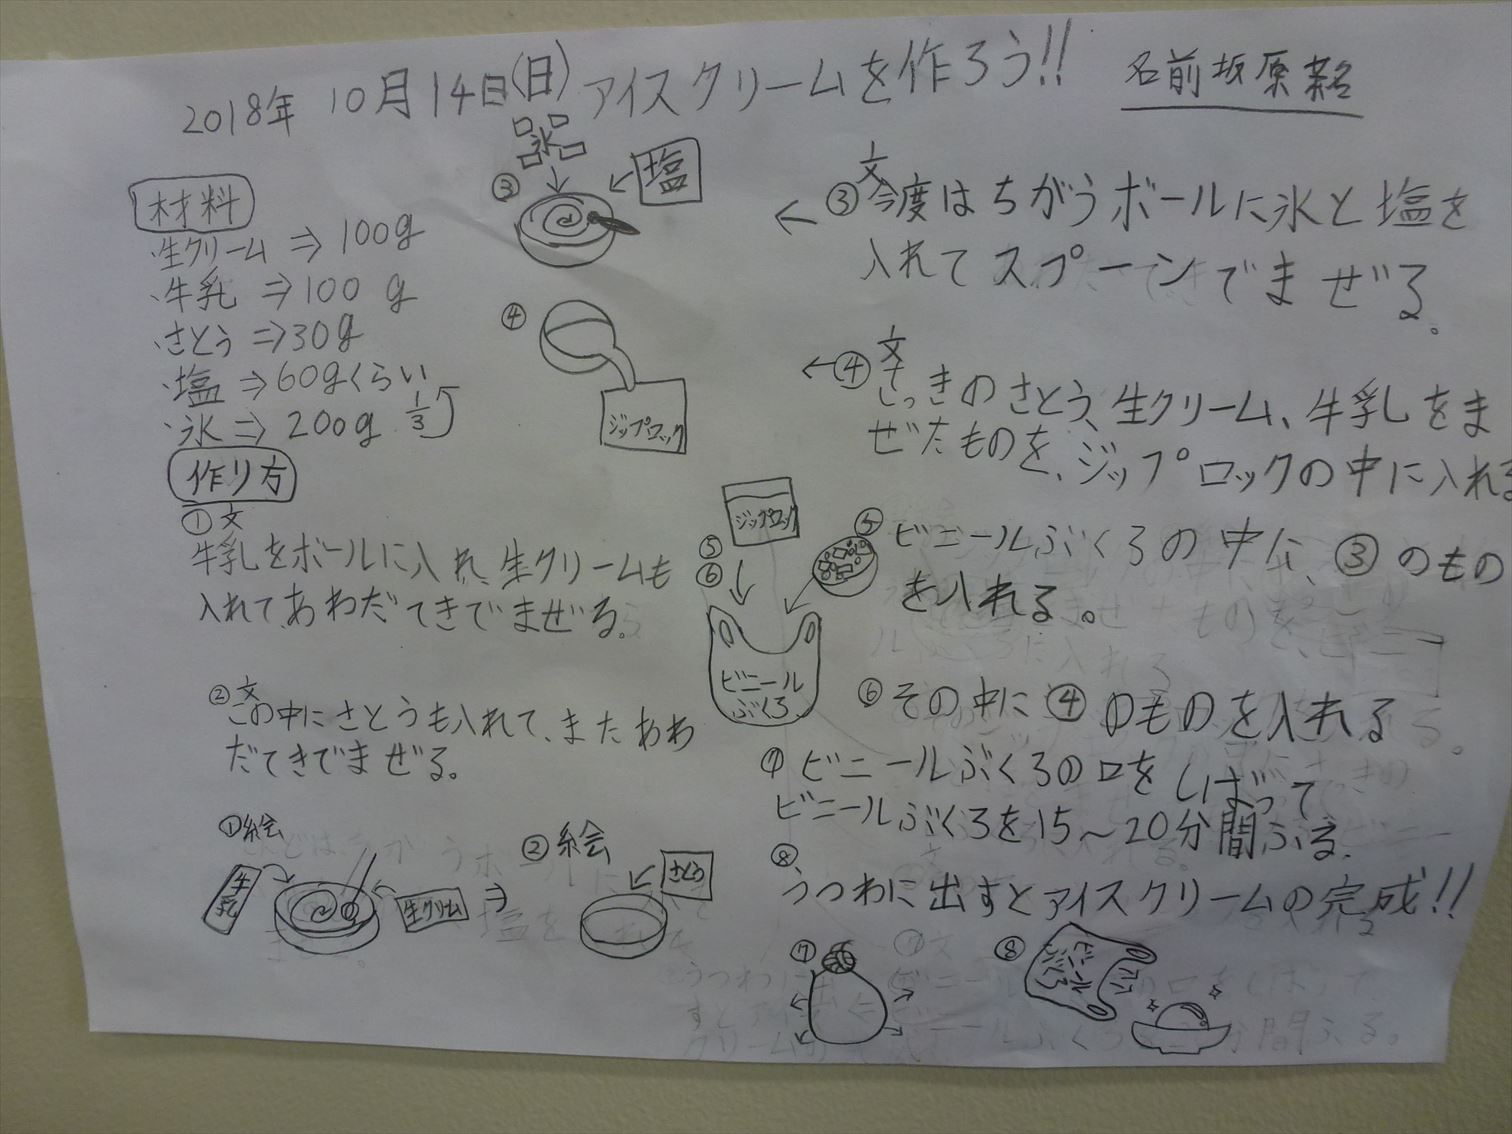 2018年 10月14日(日) アイスクリームを作ろう!!
名前 坂原
材料
・生クリーム ⇒ 100g
・牛乳 ⇒ 100g
・さとう ⇒ 30g
・塩 ⇒ 60gくらい
・氷 ⇒ 200g 1/3
作り方
①文
牛乳をボールに入れ、生クリームも
入れて、あわだてきでまぜる。
②文
この中にさとうも入れて、またあわ
だてきでまぜる。
①絵
牛乳
生クリーム
⇒
②絵
さとう
③
氷
塩
④
ジップロック
← ③文 今度はちがうボールに氷と塩を
入れてスプーンでまぜる。
← ④文
さっきのさとう、生クリーム、牛乳をま
ぜたものを、ジップロックの中に入れる
⑤
⑥
ジップロック
ビニール
ぶくろ
⑤ ビニールぶくろの中に、③のもの
を入れる。
⑥ その中に④のものを入れる
⑦ ビニールぶくろの口をしばって
ビニールぶくろを15〜20分間ふる。
⑧
うつわに出すとアイスクリームの完成!!
⑦
⑧
ビニール
ぶくろ